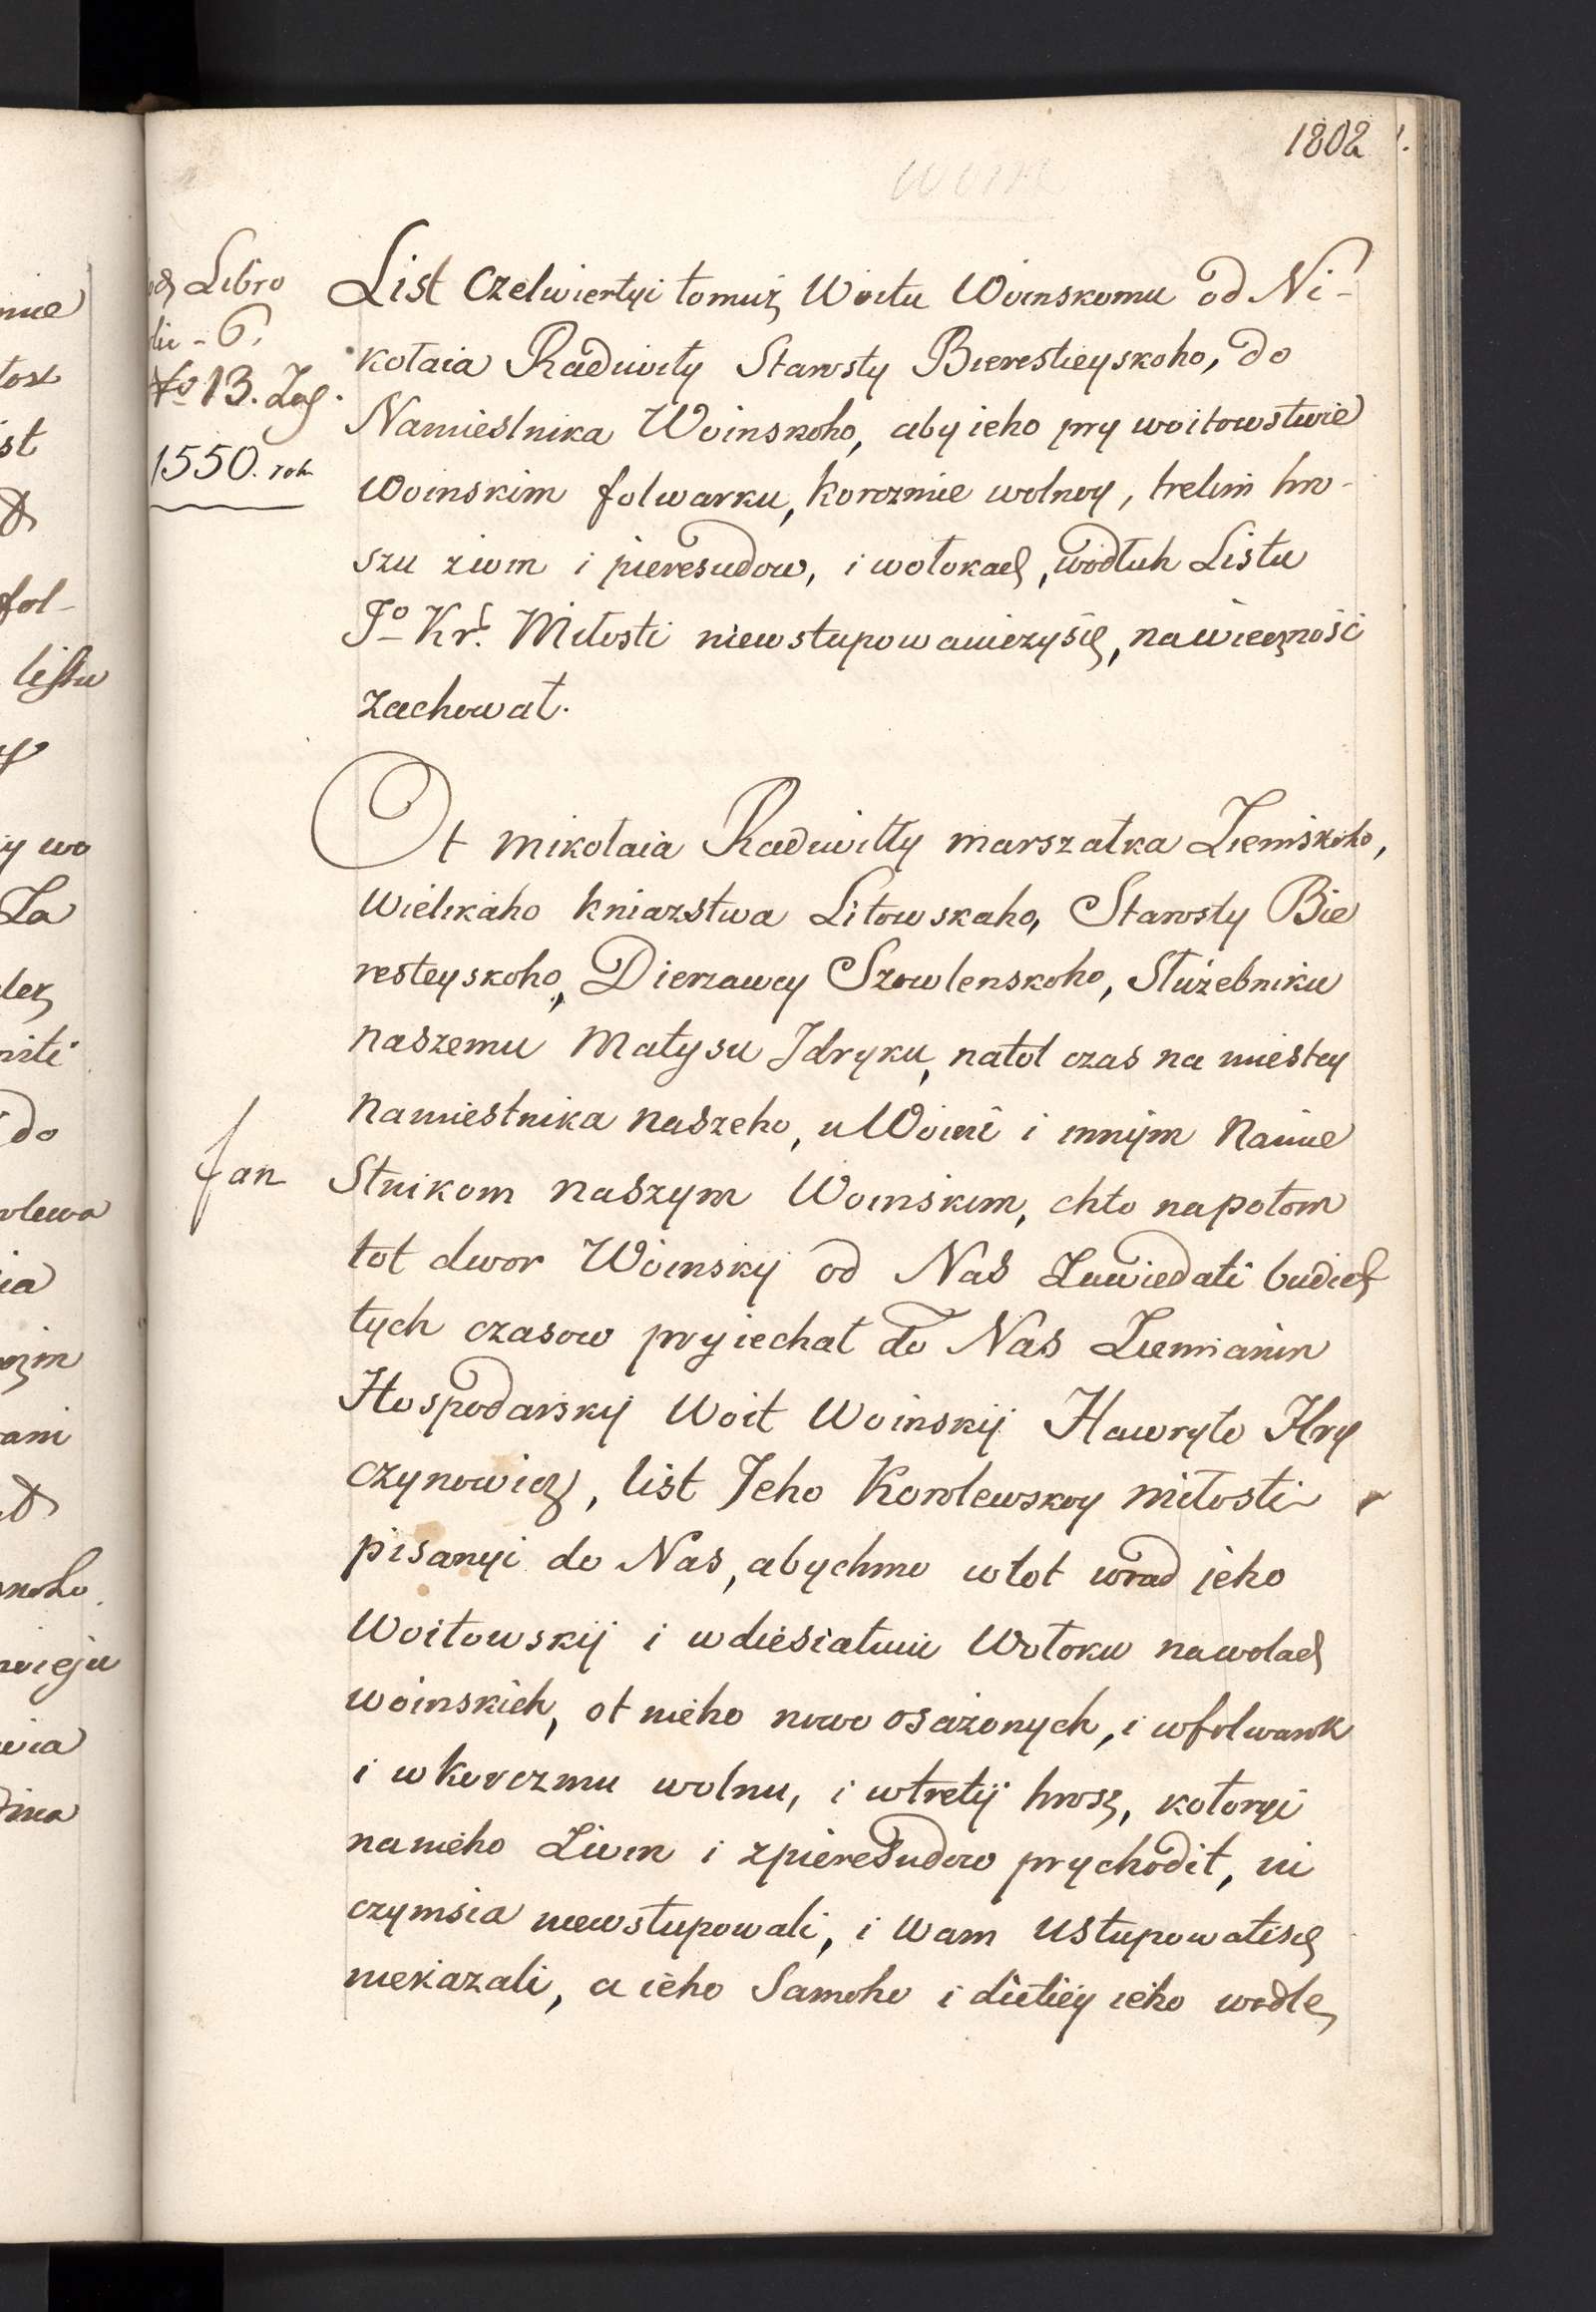 1802
Libro
6.
13. Zag.
1550. rok
List Czetwiertyi tomuż Woitu Woinskomu od Ni-
kołaia Radiwiły Starosty Bierestieyskoho, do
Namiestnika Woinskoho, aby ieho pry woitowstwie
Woinskim folwarku, korczmie wolnoy, tretim hro-
szu z iwin i pieresudow, i wołokach, wodłuh Listu
Jo Kr. Miłosti niewstupowaniezysię, nawiecznośc
zachował.
Ot Mikołaia Radiwiłły marszałka Ziemskoho,
Wielikaho kniazstwa Litowskaho, Starosty Bie
resteyskoho, Dierzawcy Szowlenskoho, Służebniku
naszemu Matysu Jdryku, natot czas na miestcy
namiestnika naszeho, u Woini i innym Namie
stnikom naszym Woinskim, chto napotom
tot dwor Woinsky od Nas Zawiedati budiet
tych czasow pryiechał do Nas Ziemianin
Hospodarsky Woit Woinskij Hawryło Hry
czynowicz, list Jeho Korolewskoy miłosti
pisanyi do Nas, abychmo wtot wrad ieho
Woitowskij i wdiesiatuiu Wołoku nawolach
woinskich, ot nieho nowo osażonych, i wfolwark
i wkorczmu wolnu, i wtretij hrosz, kotoryi
nanieho Ziwin i zpieresudow prychodit, ni
czymsia niewstupowali, i Wam ustupowatisię
niekazali, a ieho Samoho i dietiey ieho wodle